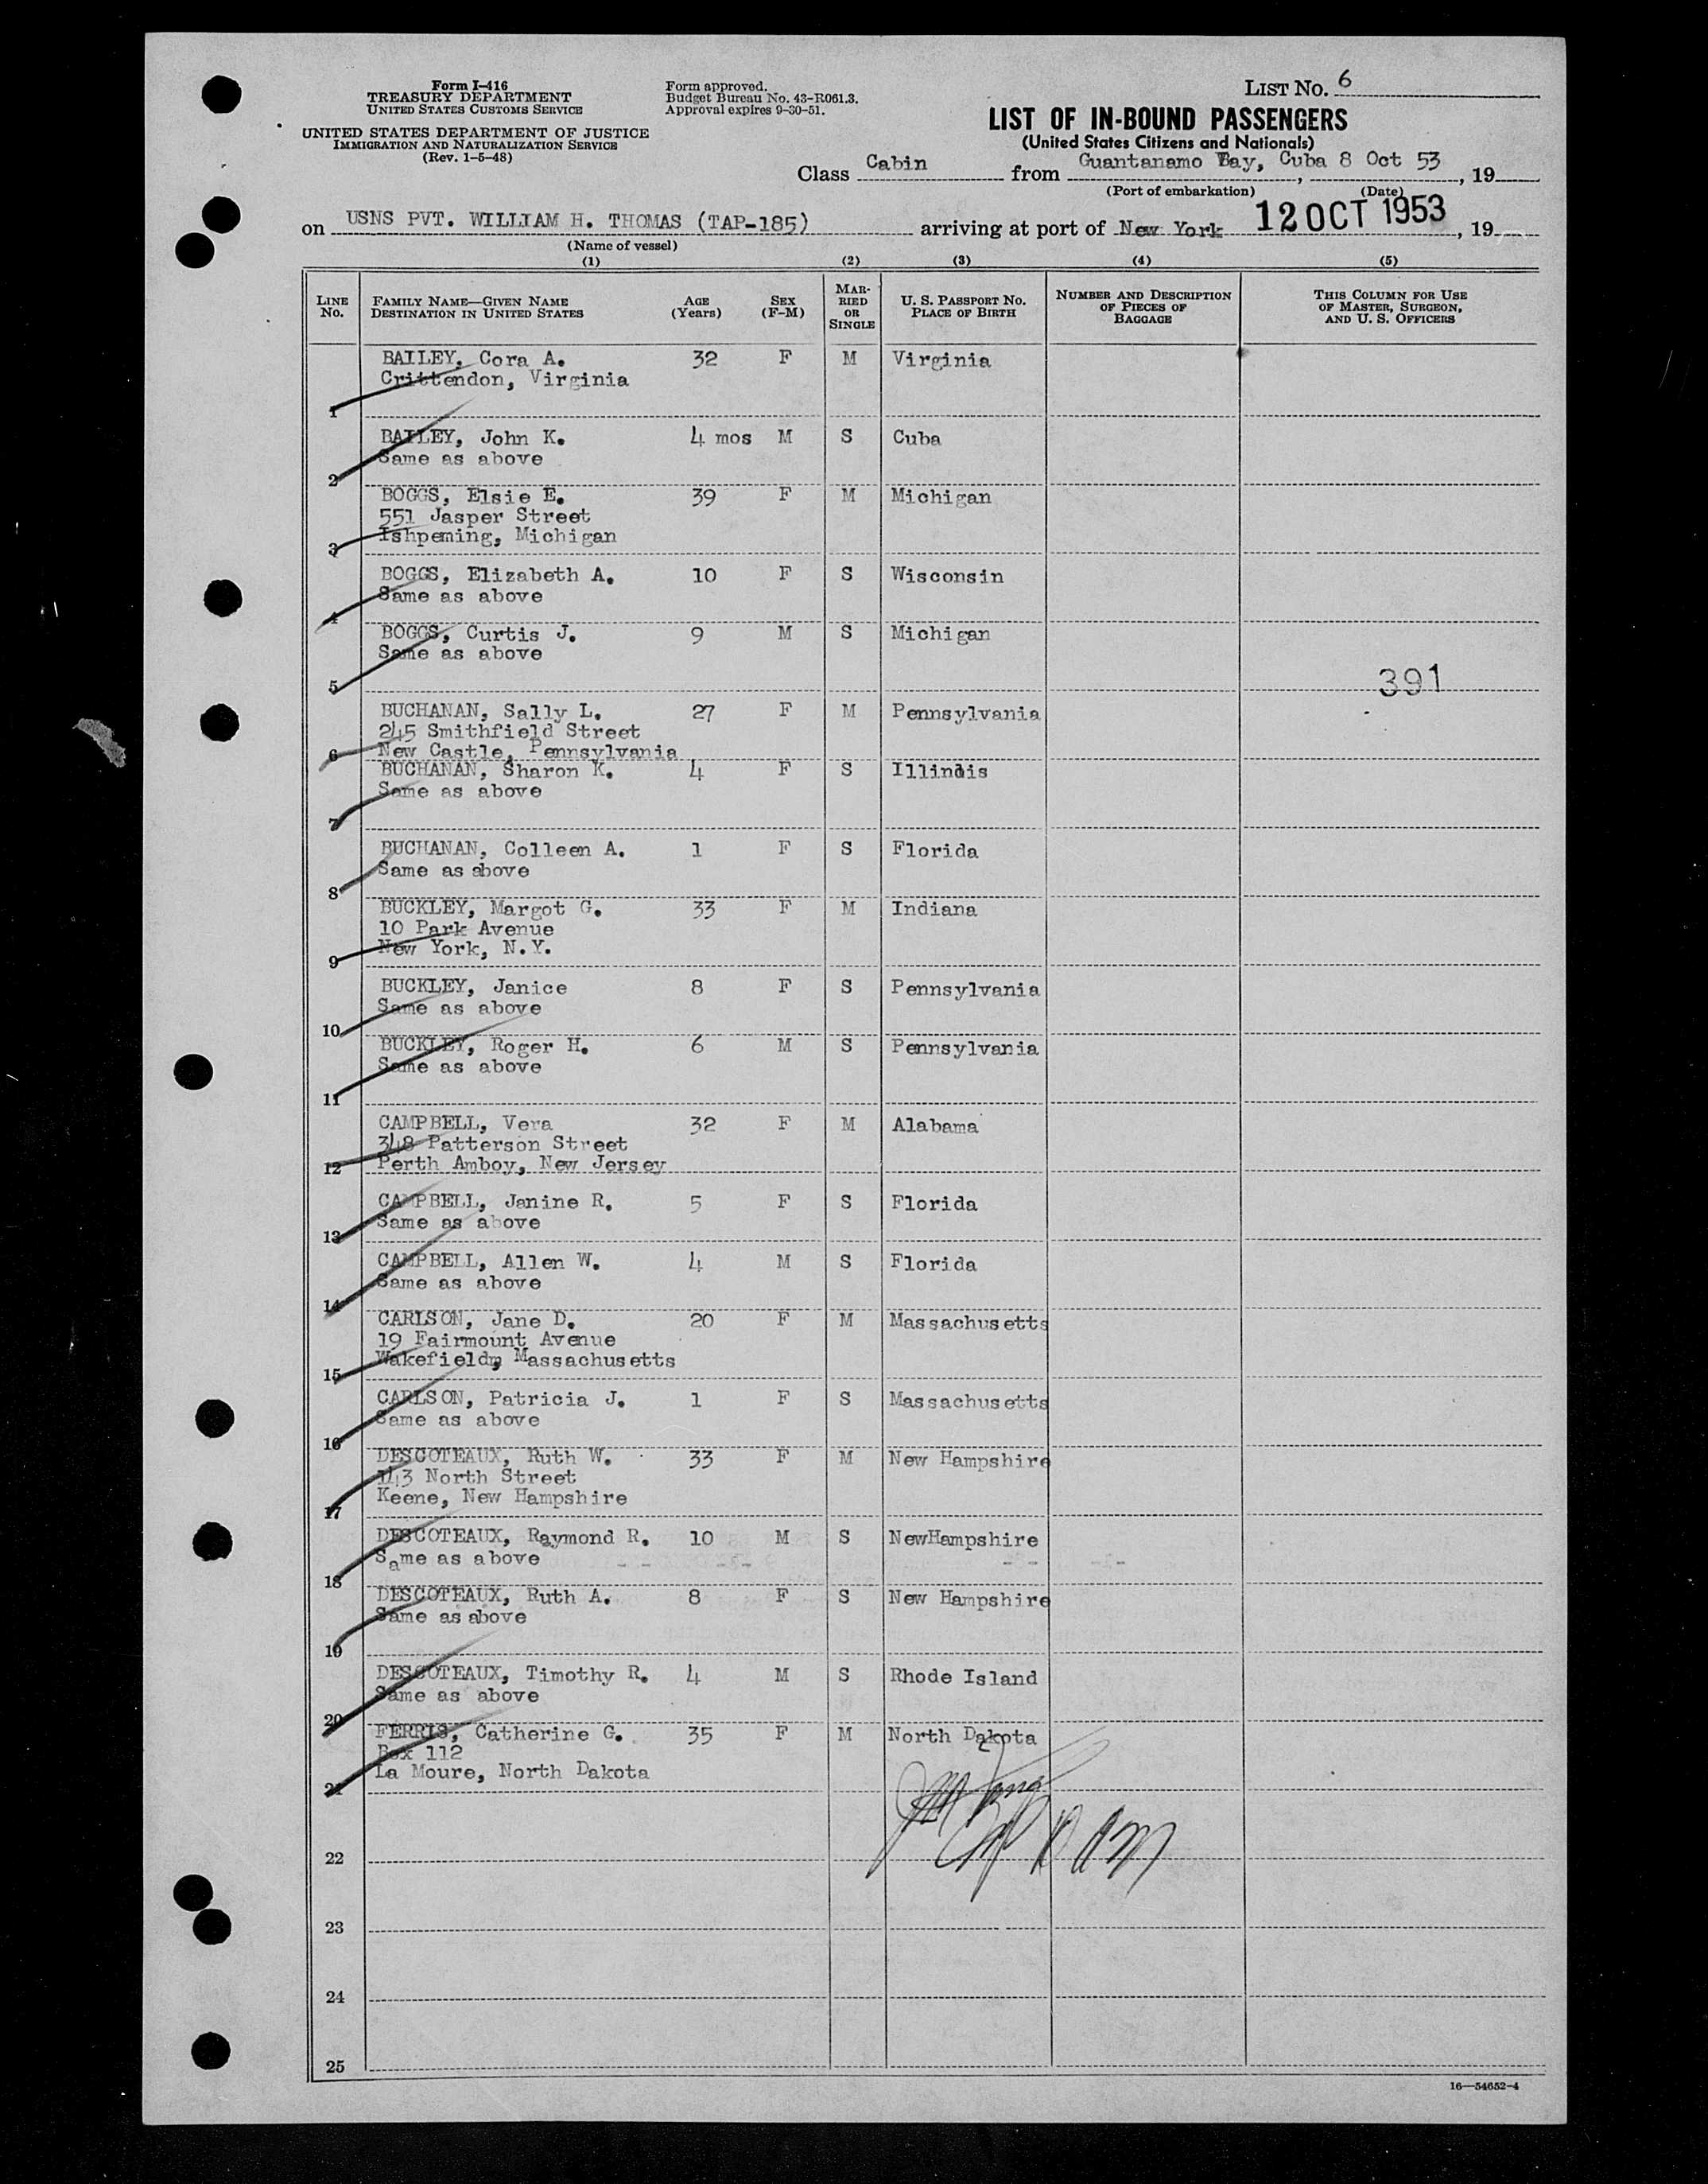 Form I-416
TREASURY DEPARTMENT
UNITED STATES CUSTOMS SERVICE
UNITED STATES DEPARTMENT OF JUSTICE
IMMIGRATION AND NATURALIZATION SERVICE
(Rev. 1-5-48)
Form approved.
Budget Bureau No. 43-R061.3.
Approval expires 9-30-51.
LIST No. 6
LIST OF IN-BOUND PASSENGERS
(United States Citizens and Nationals)
Class Cabin from Guantanamo Bay, Cuba 8 Oct 53, 19
(Port of embarkation) (Date)
on USNS PVT. WILLIAM H. THOMAS (TAP-185) arriving at port of New York 12 OCT 1953, 19
(Name of vessel)
(1) (2) (3) (4) (5)
LINE No. FAMILY NAME—GIVEN NAME DESTINATION IN UNITED STATES AGE (Years) SEX (F-M) MARRIED OR SINGLE U. S. PASSPORT No. PLACE OF BIRTH NUMBER AND DESCRIPTION OF PIECES OF BAGGAGE THIS COLUMN FOR USE OF MASTER, SURGEON, AND U. S. OFFICERS
BAILEY, Cora A. 32 F M Virginia
Crittendon, Virginia
1
BAILEY, John K. 4 mos M S Cuba
Same as above
2
BOGGS, Elsie E. 39 F M Michigan
551 Jasper Street
3 Ishpeming, Michigan
BOGGS, Elizabeth A. 10 F S Wisconsin
Same as above
4
BOGGS, Curtis J. 9 M S Michigan
Same as above
5 391
BUCHANAN, Sally L. 27 F M Pennsylvania
245 Smithfield Street
6 New Castle, Pennsylvania
BUCHANAN, Sharon K. 4 F S Illinois
Same as above
7
BUCHANAN, Colleen A. 1 F S Florida
Same as above
8
BUCKLEY, Margot G. 33 F M Indiana
10 Park Avenue
9 New York, N.Y.
BUCKLEY, Janice 8 F S Pennsylvania
Same as above
10
BUCKLEY, Roger H. 6 M S Pennsylvania
Same as above
11
CAMPBELL, Vera 32 F M Alabama
348 Patterson Street
12 Perth Amboy, New Jersey
CAMPBELL, Janine R. 5 F S Florida
Same as above
13
CAMPBELL, Allen W. 4 M S Florida
Same as above
14
CARLSON, Jane D. 20 F M Massachusetts
19 Fairmount Avenue
15 Wakefield, Massachusetts
CARLSON, Patricia J. 1 F S Massachusetts
Same as above
16
DESCOTEAUX, Ruth W. 33 F M New Hampshire
143 North Street
17 Keene, New Hampshire
DESCOTEAUX, Raymond R. 10 M S NewHampshire
Same as above
18
DESCOTEAUX, Ruth A. 8 F S New Hampshire
Same as above
19
DESCOTEAUX, Timothy R. 4 M S Rhode Island
Same as above
20
FERRIS, Catherine G. 35 F M North Dakota
Box 112
21 La Moure, North Dakota
22
23
24
25
16—54652-4